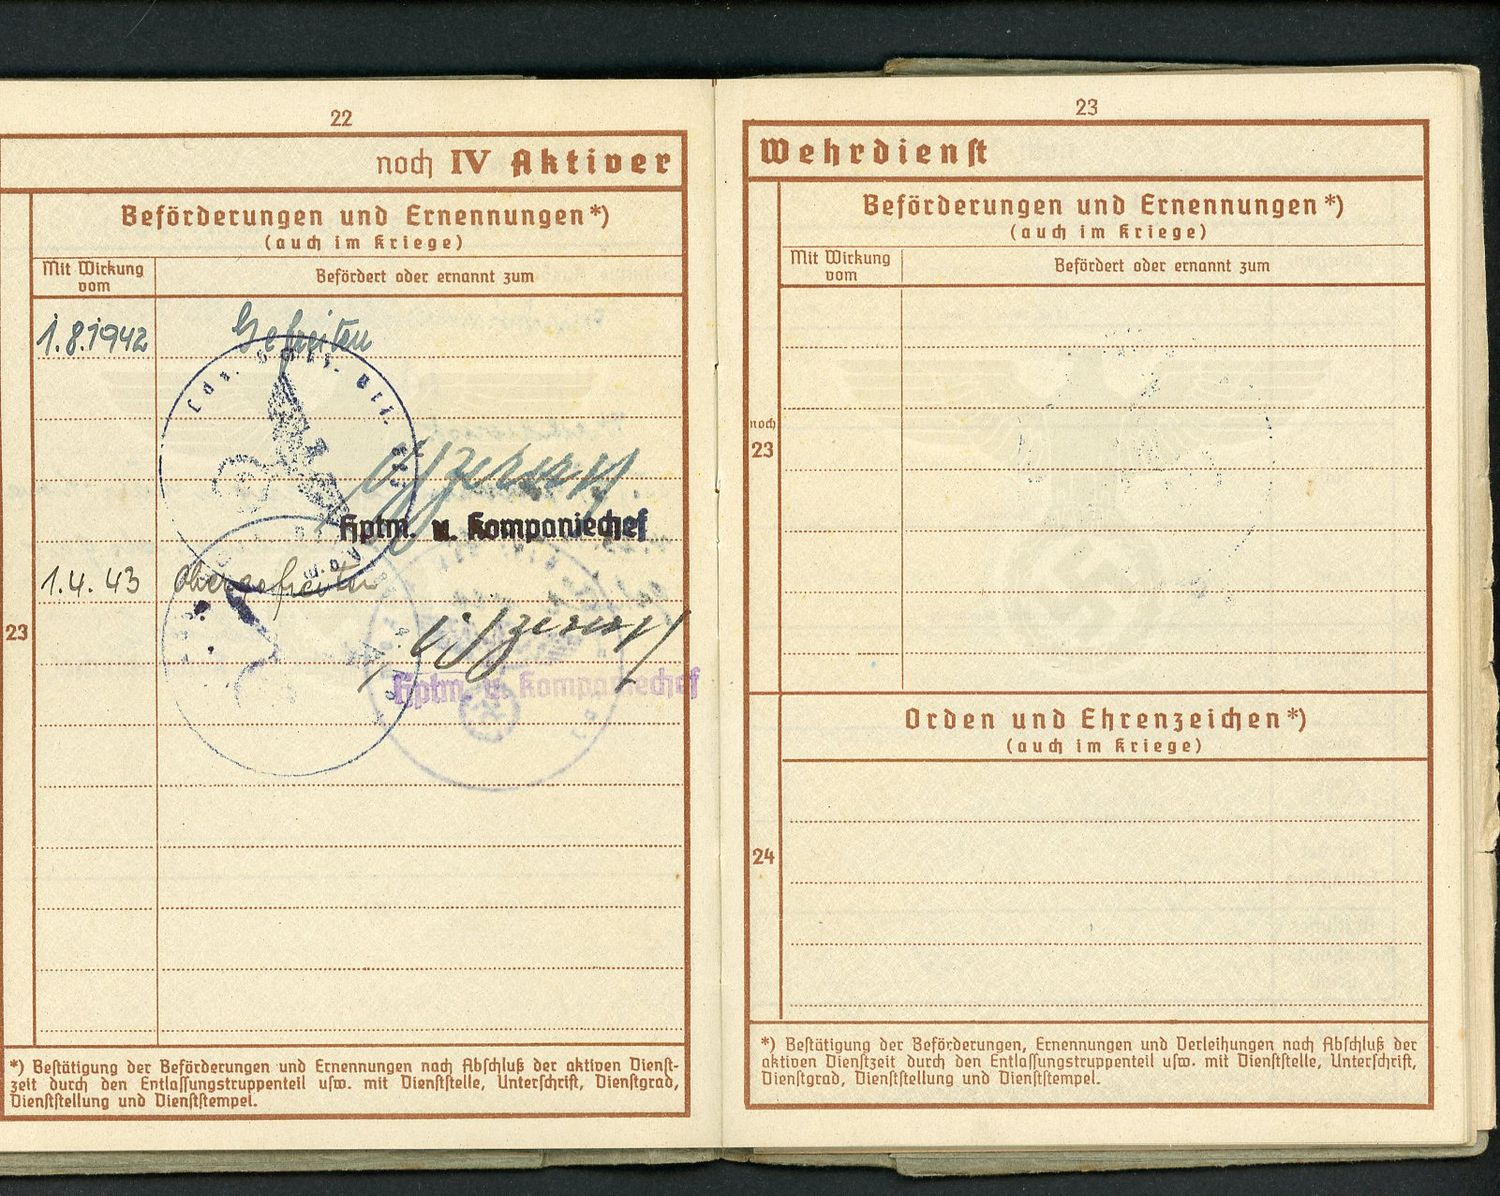 22
noch IV Aktiver
Beförderungen und Ernennungen*)
(auch im Kriege)
Mit Wirkung vom
Befördert oder ernannt zum
1.8.1942 Gefreiten
Hptm. u. Kompaniechef
1.4.43 Obergefreiten
23
Hptm. u. Kompaniechef
*) Bestätigung der Beförderungen und Ernennungen nach Abschluß der aktiven Dienst-
zeit durch den Entlassungstruppenteil usw. mit Dienststelle, Unterschrift, Dienstgrad,
Dienststellung und Dienststempel.
23
Wehrdienst
Beförderungen und Ernennungen*)
(auch im Kriege)
Mit Wirkung vom
Befördert oder ernannt zum
noch
23
Orden und Ehrenzeichen*)
(auch im Kriege)
24
*) Bestätigung der Beförderungen, Ernennungen und Verleihungen nach Abschluß der
aktiven Dienstzeit durch den Entlassungstruppenteil usw. mit Dienststelle, Unterschrift,
Dienstgrad, Dienststellung und Dienststempel.